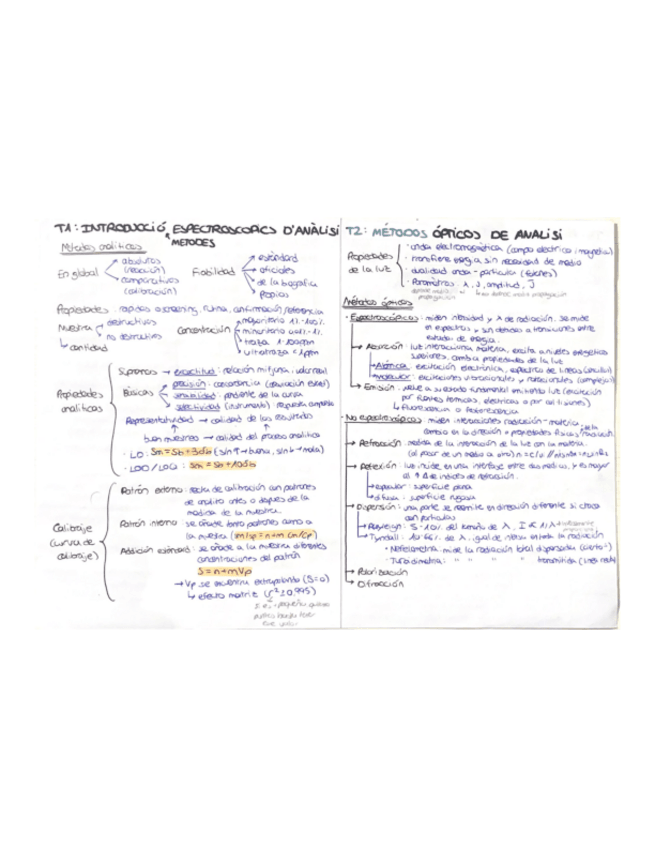 T1: INTRODUCCIÓ ESPECTROSCOPICS D'ANÀLISI
METODES
Métodos analíticos
En global
absolutos
(reacción)
comparativos
(calibración)
Fiabilidad
estándard
oficiales
de la biografica
propios
Propiedades: rapidos o screening, rutina, confirmación/referencia
Muestra
destructivos
no destructivos
cantidad
Concentración
mayoritario 1%-100%
minoritario
traza
ultratraza < 1ppm
Propiedades
analíticas
Supremas → exactitud: relación mi/una, valor real
Básicas
precisión: concordancia
sensibilidad: pendiente de la curva
selectividad (instrumento) respuesta
Representatividad → calidad de los resultados
buen muestreo → calidad del proceso analítico
LD: Sm = Sb + 3σb
LDD/LOQ: Sm = Sb + 10σb
Calibraje
(curva de
calibraje)
Patrón externo: recta de calibración con patrones
de analito antes o después de la
medida de la muestra.
Patrón interno: se añade tanto patrones como a
la muestra
Addición estándard: se añade a la muestra diferentes
concentraciones del patrón
S = n + mVp
→ Vp se encuentra extrapolando (S=0)
↳ efecto matriz (r² ≥ 0,995)
T2: MÉTODOS ÓPTICOS DE ANALISI
Propiedades
de la luz
· onda electromagnética (campo electrico i magnetico)
· transfiere energia sin necesidad de medio
· dualidad onda - particula (fotones)
· Parametros: λ, J, amplitud,
Métodos ópticos
· Espectroscópicos: miden intensidad y λ de radiación. se mide
en espectros y son debidos a transiciones entre
estados de energia.
→ Absorción: luz interacciona materia, excita a niveles energéticos
superiores, cambia propiedades de la luz
→ Atómica: excitación electrónica, espectros de lineas (sencillo)
→ Molecular: excitaciones vibracionales y rotacionales (complejo)
→ Emisión: vuelve a su estado fundamental emitiendo luz (excitación
por fuentes termicas, electricas o por colisiones)
↳ fluorescencia o fosforescencia
· No espectroscópicos: miden interacciones radiación - materia,
cambio en la dirección o propiedades fisicas de la radiación
→ Refracción: medida de la interacción de la luz con la materia.
(al pasar de un medio a otro) n = c/v
→ Reflexión: luz incide en una interfase entre dos medios, y es mayor
al ↑ Δ de indices de refracción.
→ especular: superficie plana
→ difusa: superficie rugosa
→ Dispersión: una parte se reemite en dirección diferente si choca
con particulas
→ Rayleigh: 5-10% del tamaño de λ, I ∝ 1/λ⁴
→ Tyndall: de λ, igual de intensa en toda la radiación
· Nefelometria: mide la radiación total dispersada
· Turbidimetria: " " " transmitida
→ Polarización
→ Difracción